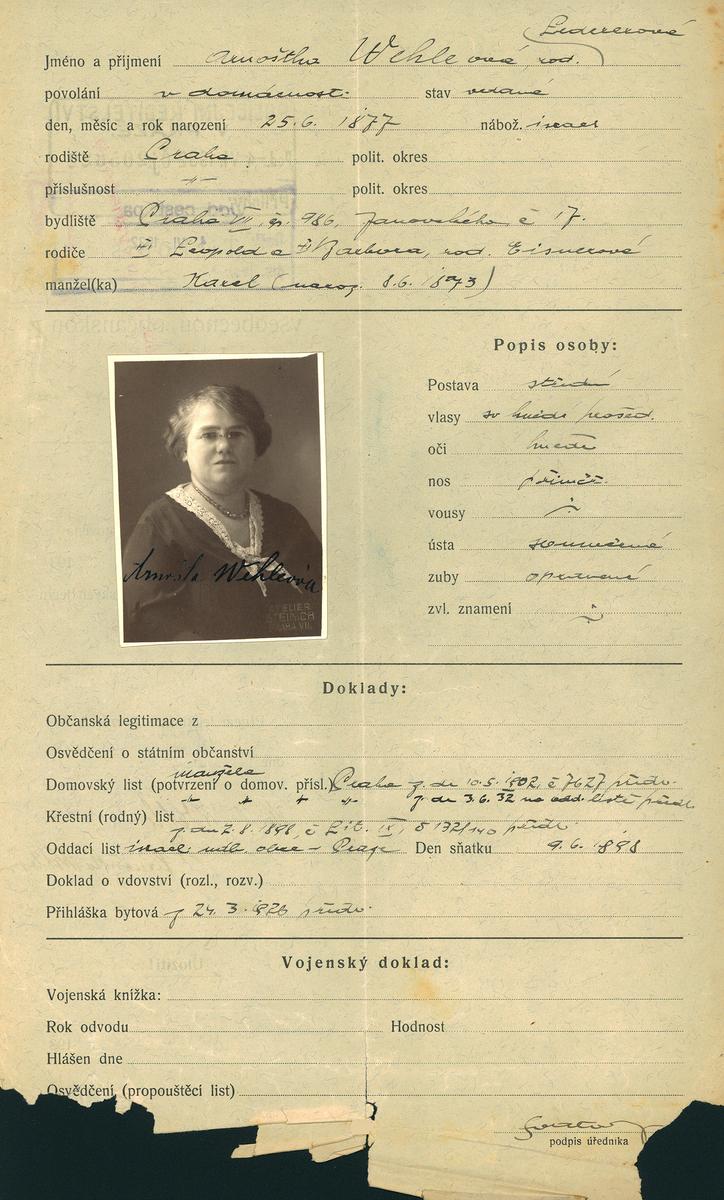 Ledererová
Jméno a příjmení Arnoštka Wehleová, roz.
povolání v domácnosti stav vdaná
den, měsíc a rok narození 25.6. 1877 nábož. israel
rodiště Praha polit. okres
příslušnost -"- polit. okres
bydliště Praha VII, čp. 986, Janovského č 17.
rodiče Leopold a Barbora, roz. Eisnerové
manžel(ka) Karel (naroz. 8.6. 1873)
Popis osoby:
Postava střední
vlasy sv hnědé prošed.
oči hnědé
nos přiměř.
vousy
ústa souměrná
zuby opravené
zvl. znamení
Arnošta Wehleová
ATELIER
STEINICH
PRAHA VII.
Doklady:
Občanská legitimace z
Osvědčení o státním občanství
manžela
Domovský list (potvrzení o domov. přísl.) Praha z. de 10.5. 1902, č 7627 předl.
z. de 3.6.32 na odd. listě předl.
Křestní (rodný) list
z. dne 2.8. 1898, č
Oddací list israel. náb. obce - Praze Den sňatku 9.6. 1898
Doklad o vdovství (rozl., rozv.)
Přihláška bytová z 24.3.1926 předl.
Vojenský doklad:
Vojenská knížka:
Rok odvodu Hodnost
Hlášen dne
Osvědčení (propouštěcí list)
podpis úředníka